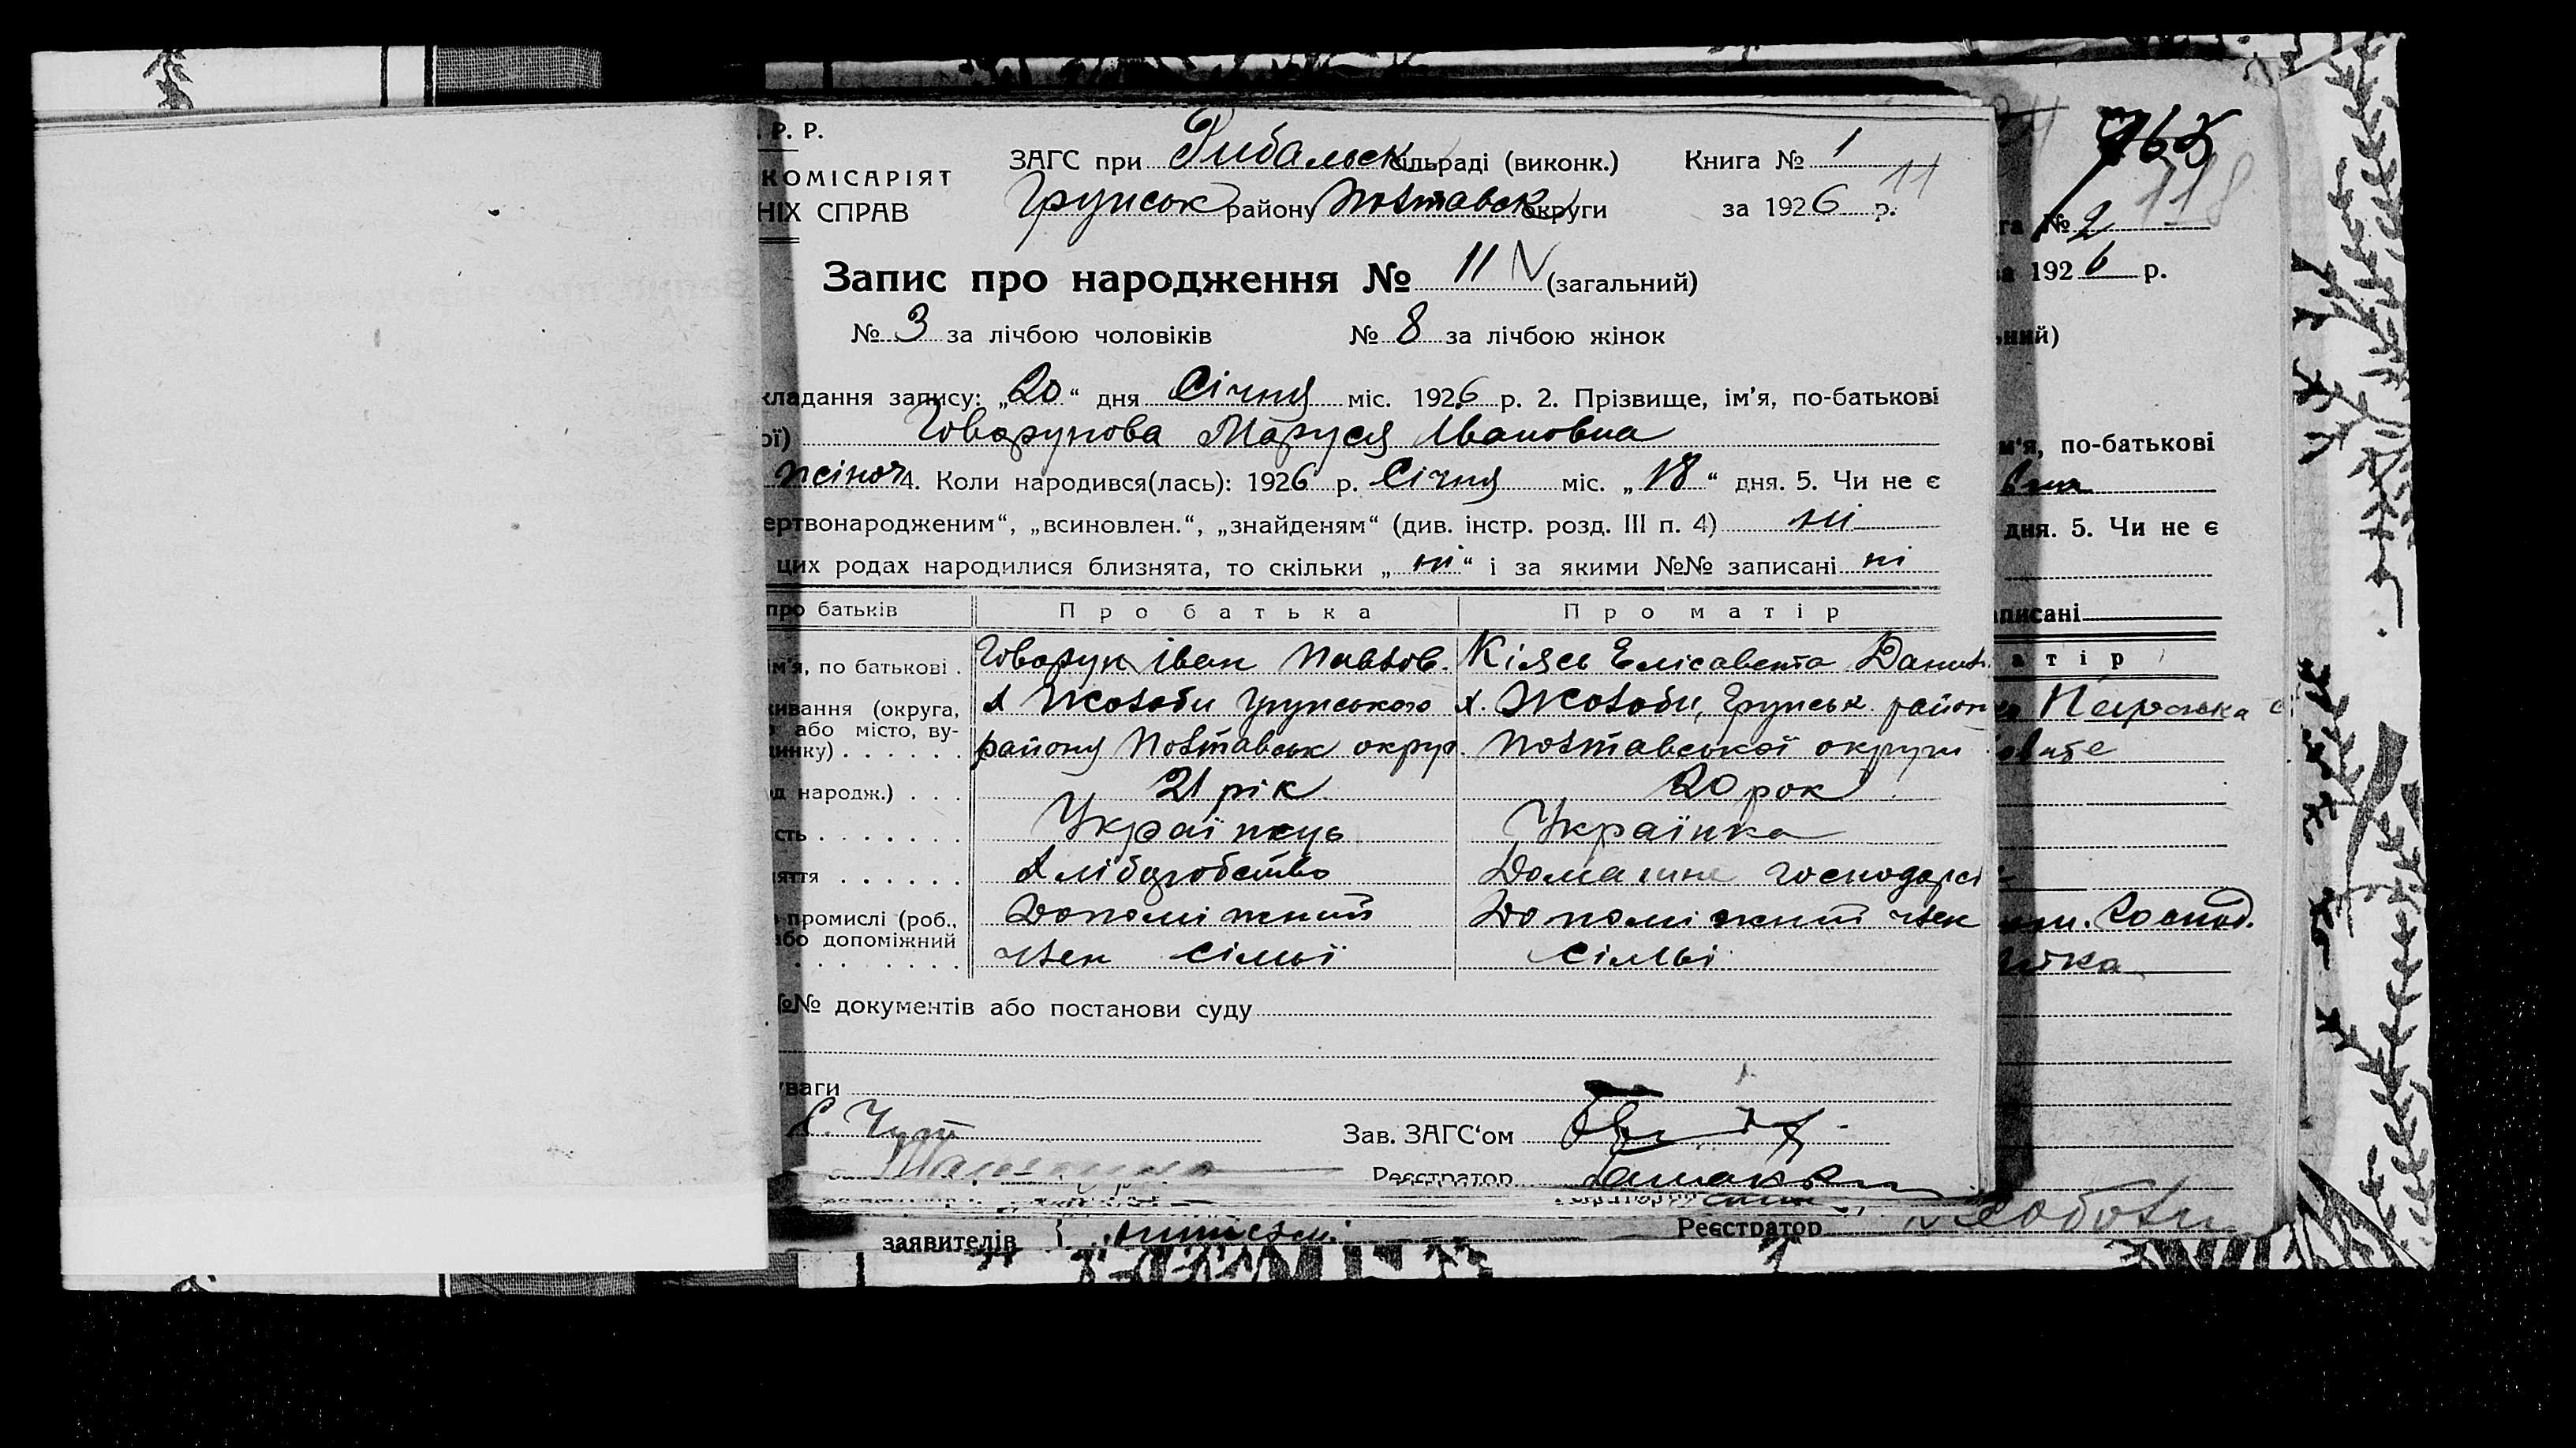 . Р. Р.
КОМІСАРІЯТ
НІХ СПРАВ
ЗАГС при Рибальск сільраді (виконк.) Книга № 1
11
Грунськ району Полтавськ округи за 1926 р.
Запис про народження № 11 (загальний)
№ 3 за лічбою чоловіків № 8 за лічбою жінок
кладання запису: „20“ дня Січня міс. 1926 р. 2. Прізвище, ім'я, по-батькові
ої) Говорунова Маруся Івановна
жіноч 4. Коли народився(лась): 1926 р. Січня міс. „18“ дня. 5. Чи не є
ертвонародженим“, „всиновлен.“, „знайденям“ (див. інстр. розд. III п. 4) ні
цих родах народилися близнята, то скільки „ні“ і за якими №№ записані ні
про батьків Про батька Про матір
ім'я, по батькові . Говорун Іван Павлов. Кіясь Елісавента Данил
ивання (округа, х Жолоби Грунського х. Жолоби, Грунськ. район
або місто, ву-
инку) . . . . . . району Полтавськ округ. Полтавської округи
д народж.) . . . 21 рік 20 рок
сть . . . . . . . Українець Українка
яття . . . . . . Хліборобство Домашнє господарст
промислі (роб., Допоміжний Допоміжний член
або допоміжний
. . . . . . . . член сімьї сімьї
№№ документів або постанови суду
уваги
Зав. ЗАГС'ом
Реєстратор
заявителів
Реєстратор
118
га № 2
а 1926 р.
ьний)
м'я, по-батькові
вна
дня. 5. Чи не є
аписані
а т і р
господ.